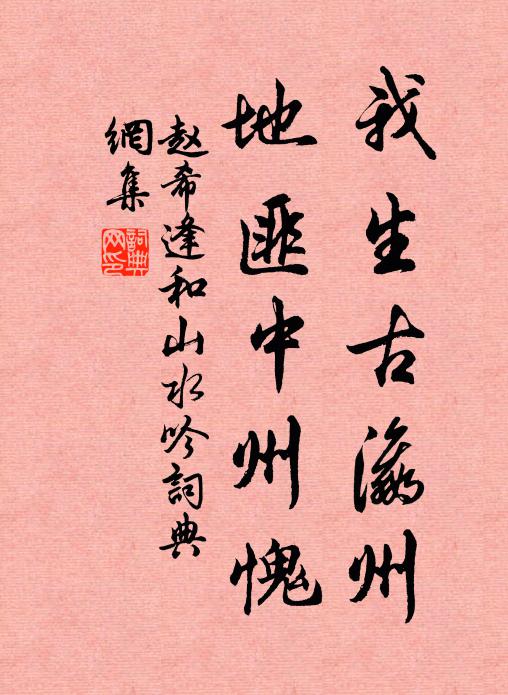 我生古瀛州
地匪中州愧
赵希逢和山水吟詞典
網集
詞典
网印